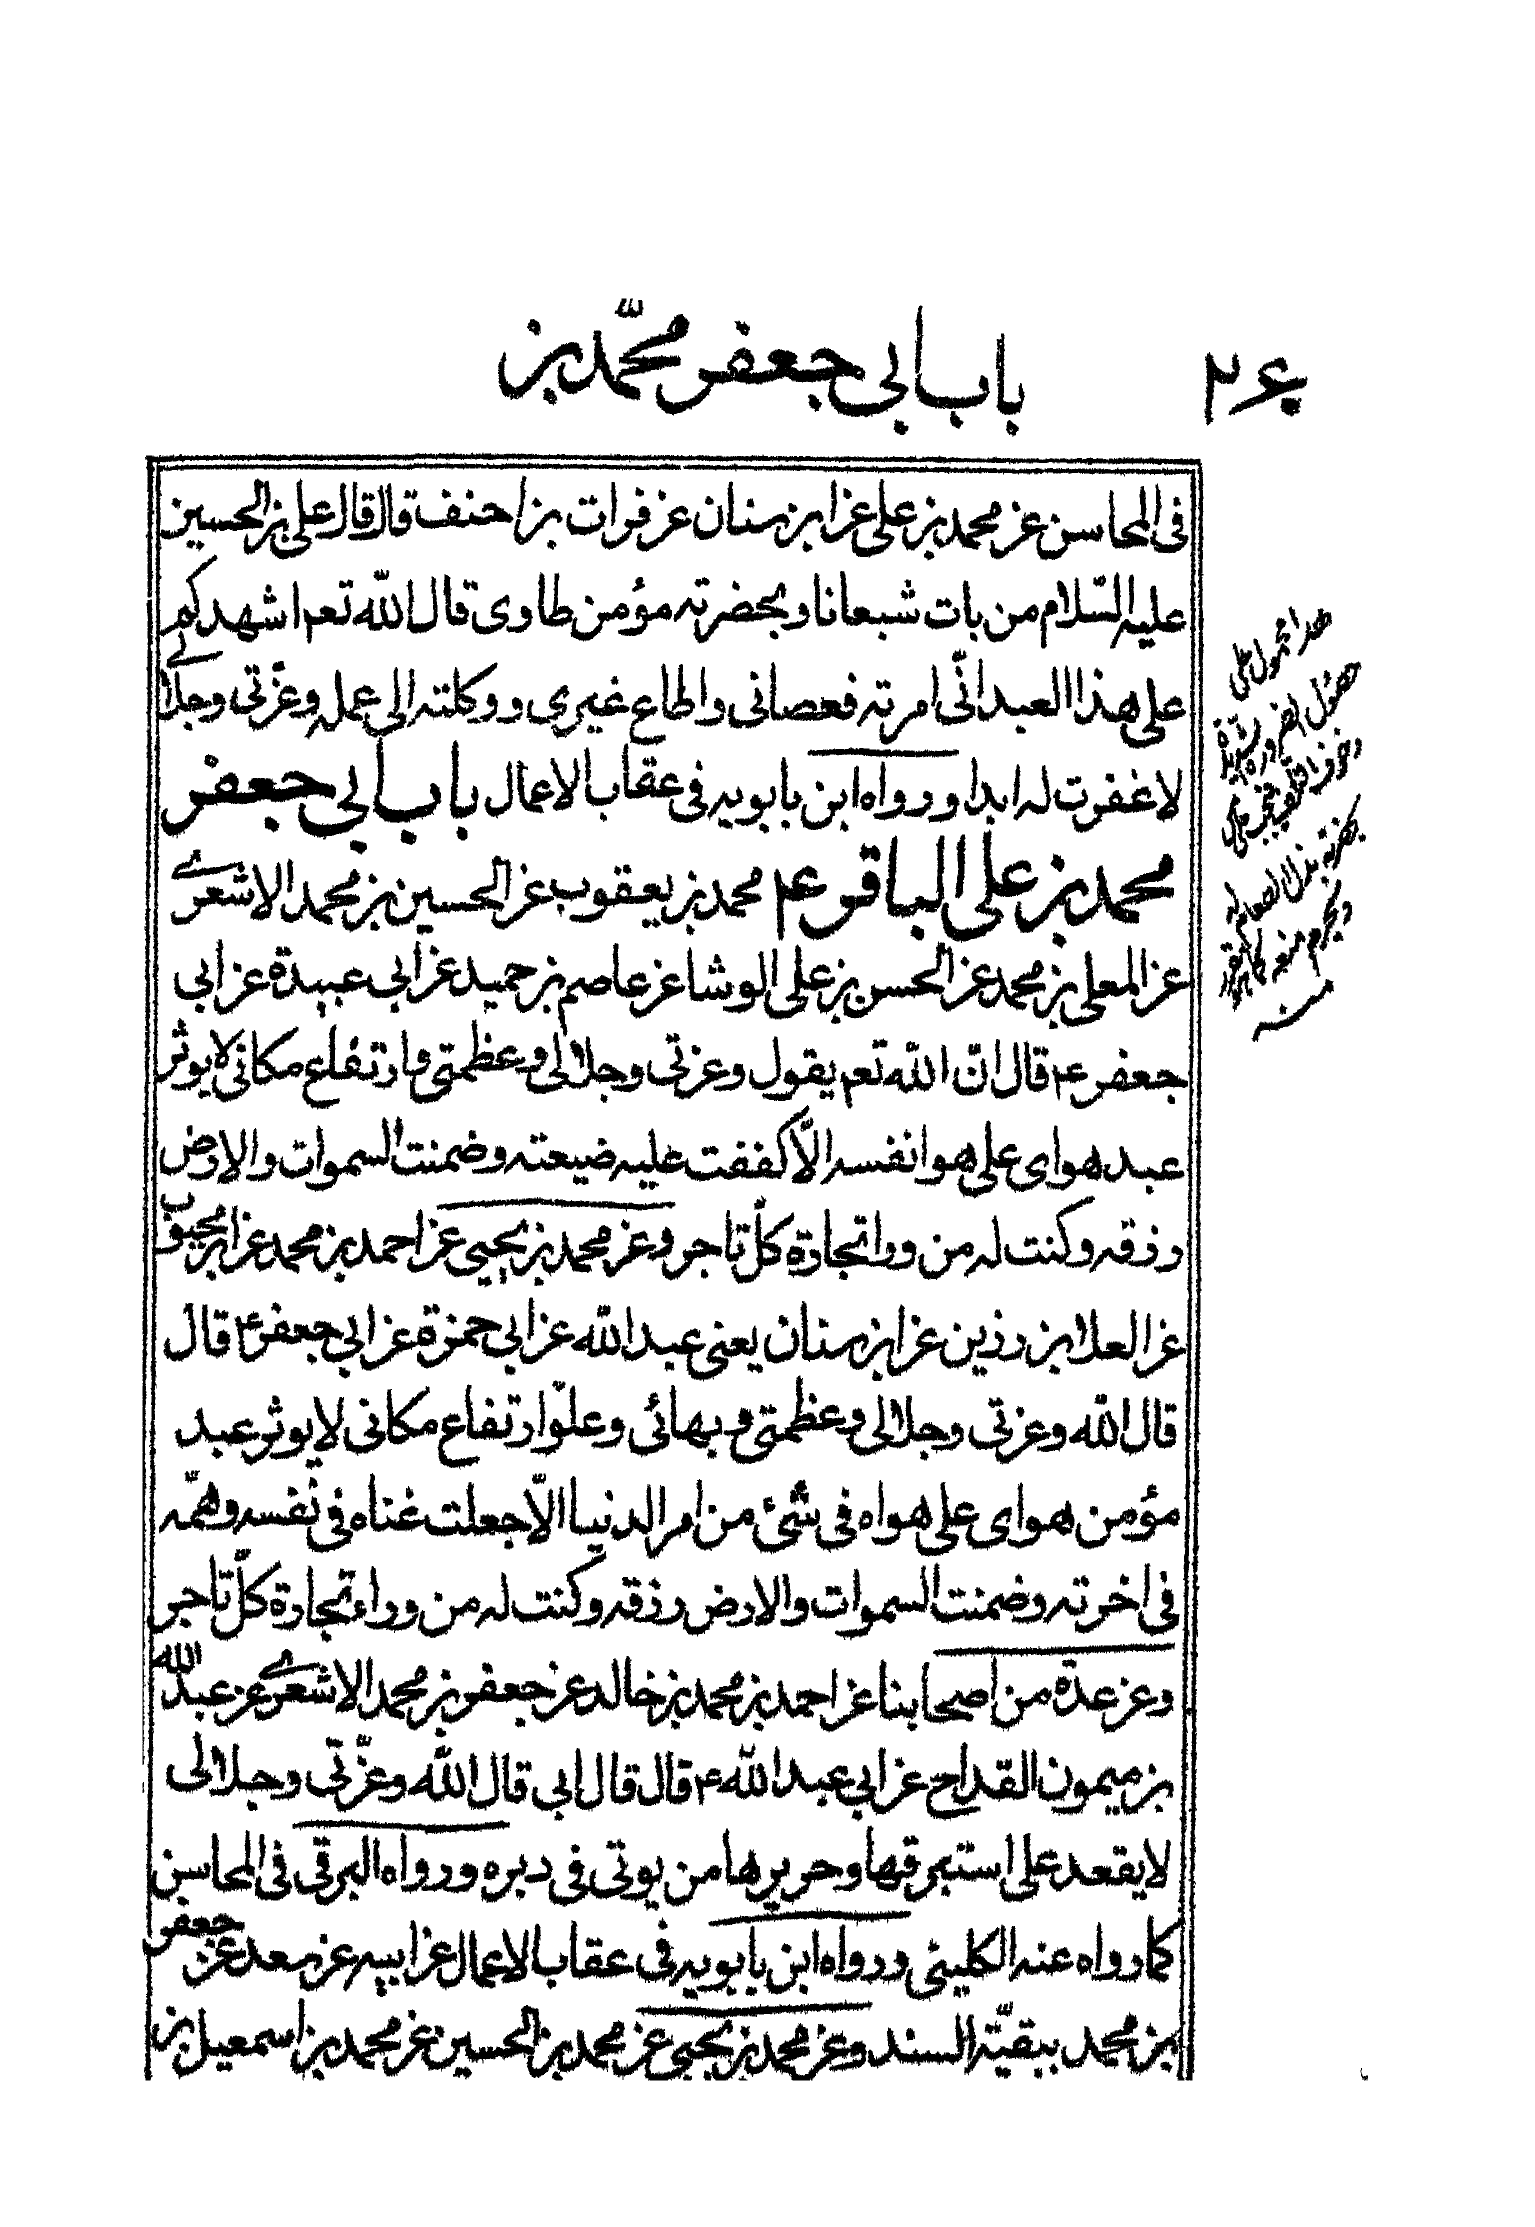 ٢٤٠ باب ابی جعفر محمّد بن
فی المحاسن عن محمد بن علی عن ابن سنان عن فرات بن احنف قال قال علی بن الحسین
علیه السّلام من بات شبعانا وبحضرته مؤمن طاوی قال اللّه تعم اشهدکم
علی هذا العبد انّی امرته فعصانی واطاع غیری ووکلته الی عمله وعزّتی وجلالی
لا غفرت له ابدا ورواه ابن بابویه فی عقاب الاعمال باب ابی جعفر
محمد بن علی الباقر ع محمد بن یعقوب عن الحسین بن محمد الاشعری
عن المعلی بن محمد عن الحسن بن علی الوشا عن عاصم بن حمید عن ابی عبیدة عن ابی
جعفر ع قال انّ اللّه تعم یقول وعزتی وجلالی وعظمتی وارتفاع مکانی لا یوثر
عبد هوای علی هوا نفسه الّا کففت علیه ضیعته وضمنت السموات والارض
رزقه وکنت له من ورا تجارة کلّ تاجر وعن محمد بن یحیی عن احمد بن محمد عن ابن محبوب
عن العلا بن رزین عن ابن سنان یعنی عبد اللّه عن ابی حمزة عن ابی جعفر ع قال
قال اللّه وعزتی وجلالی وعظمتی وبهائی وعلوّ ارتفاع مکانی لا یوثر عبد
مؤمن هوای علی هواه فی شیٔ من امر الدنیا الّا جعلت غناه فی نفسه وهمّه
فی اخرته وضمنت السموات والارض رزقه وکنت له من وراء تجارة کلّ تاجر
وعن عدّة من اصحابنا عن احمد بن محمد بن خالد عن جعفر بن محمد الاشعری عن عبد اللّه
بن میمون القداح عن ابی عبد اللّه ع قال قال ابی قال اللّه وعزّتی وجلالی
لا یقعد علی استبرقها وحریرها من یوتی فی دبره ورواه البرقی فی المحاسن
کما رواه عنه الکلینی ورواه ابن بابویه فی عقاب الاعمال عن ابیه عن سعد عن جعفر
بن محمد ببقیّة السند وعن محمد بن یحیی عن محمد بن الحسین عن محمد بن اسمعیل بن
هذا محمول علی